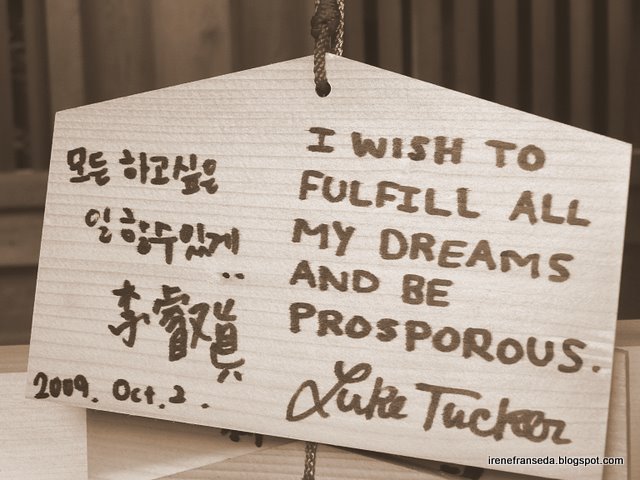 모든 하고싶은
일 할수있게
..
李睿眞
2009. Oct. 2.
I WISH TO
FULFILL ALL
MY DREAMS
AND BE
PROSPOROUS.
Luke Tucker
irenefranseda.blogspot.com